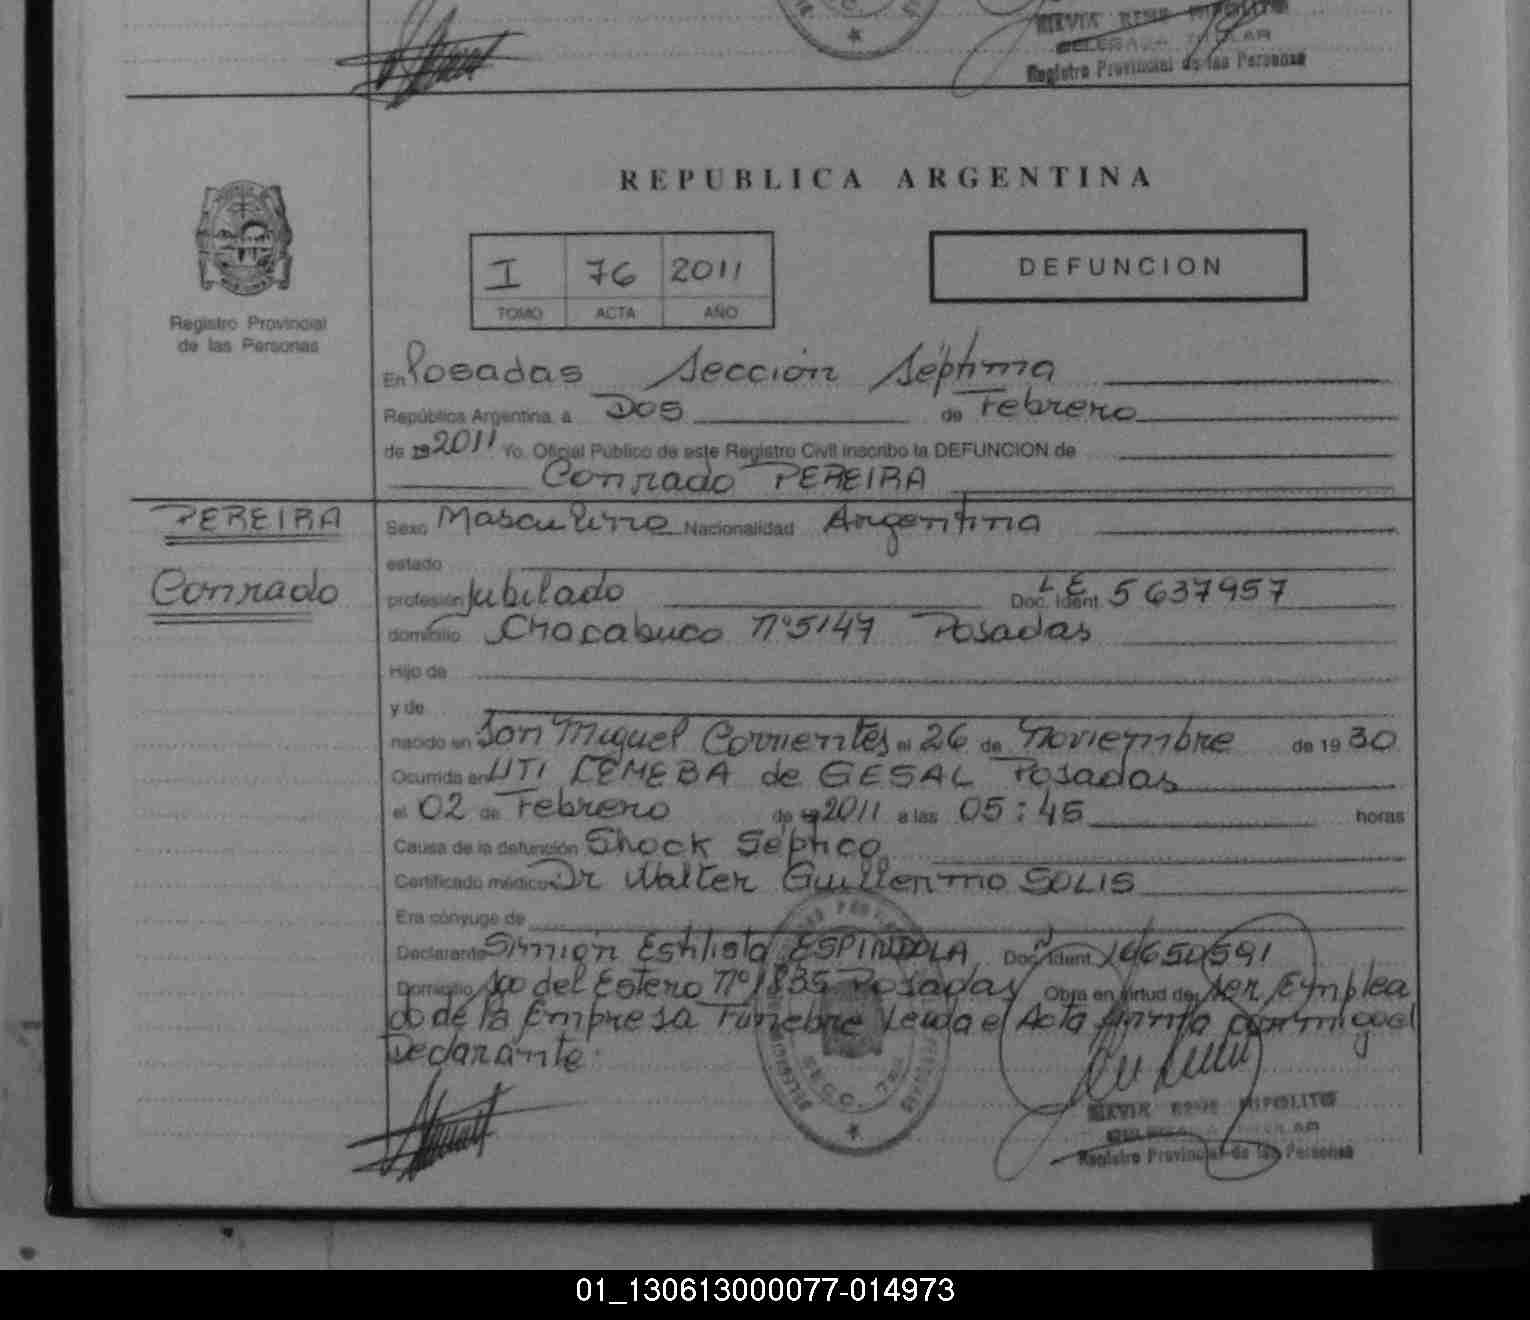 SILVIA RENE HIPOLITO
DELEGADA TITULAR
Registro Provincial de las Personas
Registro Provincial
de las Personas
REPUBLICA ARGENTINA
I 76 2011
TOMO ACTA AÑO
DEFUNCION
En Posadas Sección Séptima
República Argentina, a Dos de Febrero
de 19 2011 Yo, Oficial Público de este Registro Civil inscribo la DEFUNCION de
Conrado PEREIRA
PEREIRA
Conrado
Sexo Masculino Nacionalidad Argentina
estado
profesión Jubilado Doc. Ident. L E 5637957
domicilio Chacabuco Nº 5147 Posadas
Hijo de
y de
nacido en San Miguel Corrientes el 26 de Noviembre de 19 30
Ocurrida en UTI CEMEBA de GESAL Posadas
el 02 de Febrero de 19 2011 a las 05:45 horas
Causa de la defunción Shock Séptico
Certificado médico Dr Walter Guillermo SOLIS
Era cónyuge de
Declarante Simión Estilisto ESPINDOLA Doc. Ident.
Domicilio Sgo del Estero Nº 1835 Posadas Obra en virtud de Ser Emplea
do de la Empresa Funebre Leida el Acta firma conmigo el
Declarante.
SILVIA RENE HIPOLITO
DELEGADA TITULAR
Registro Provincial de las Personas
01_130613000077-014973